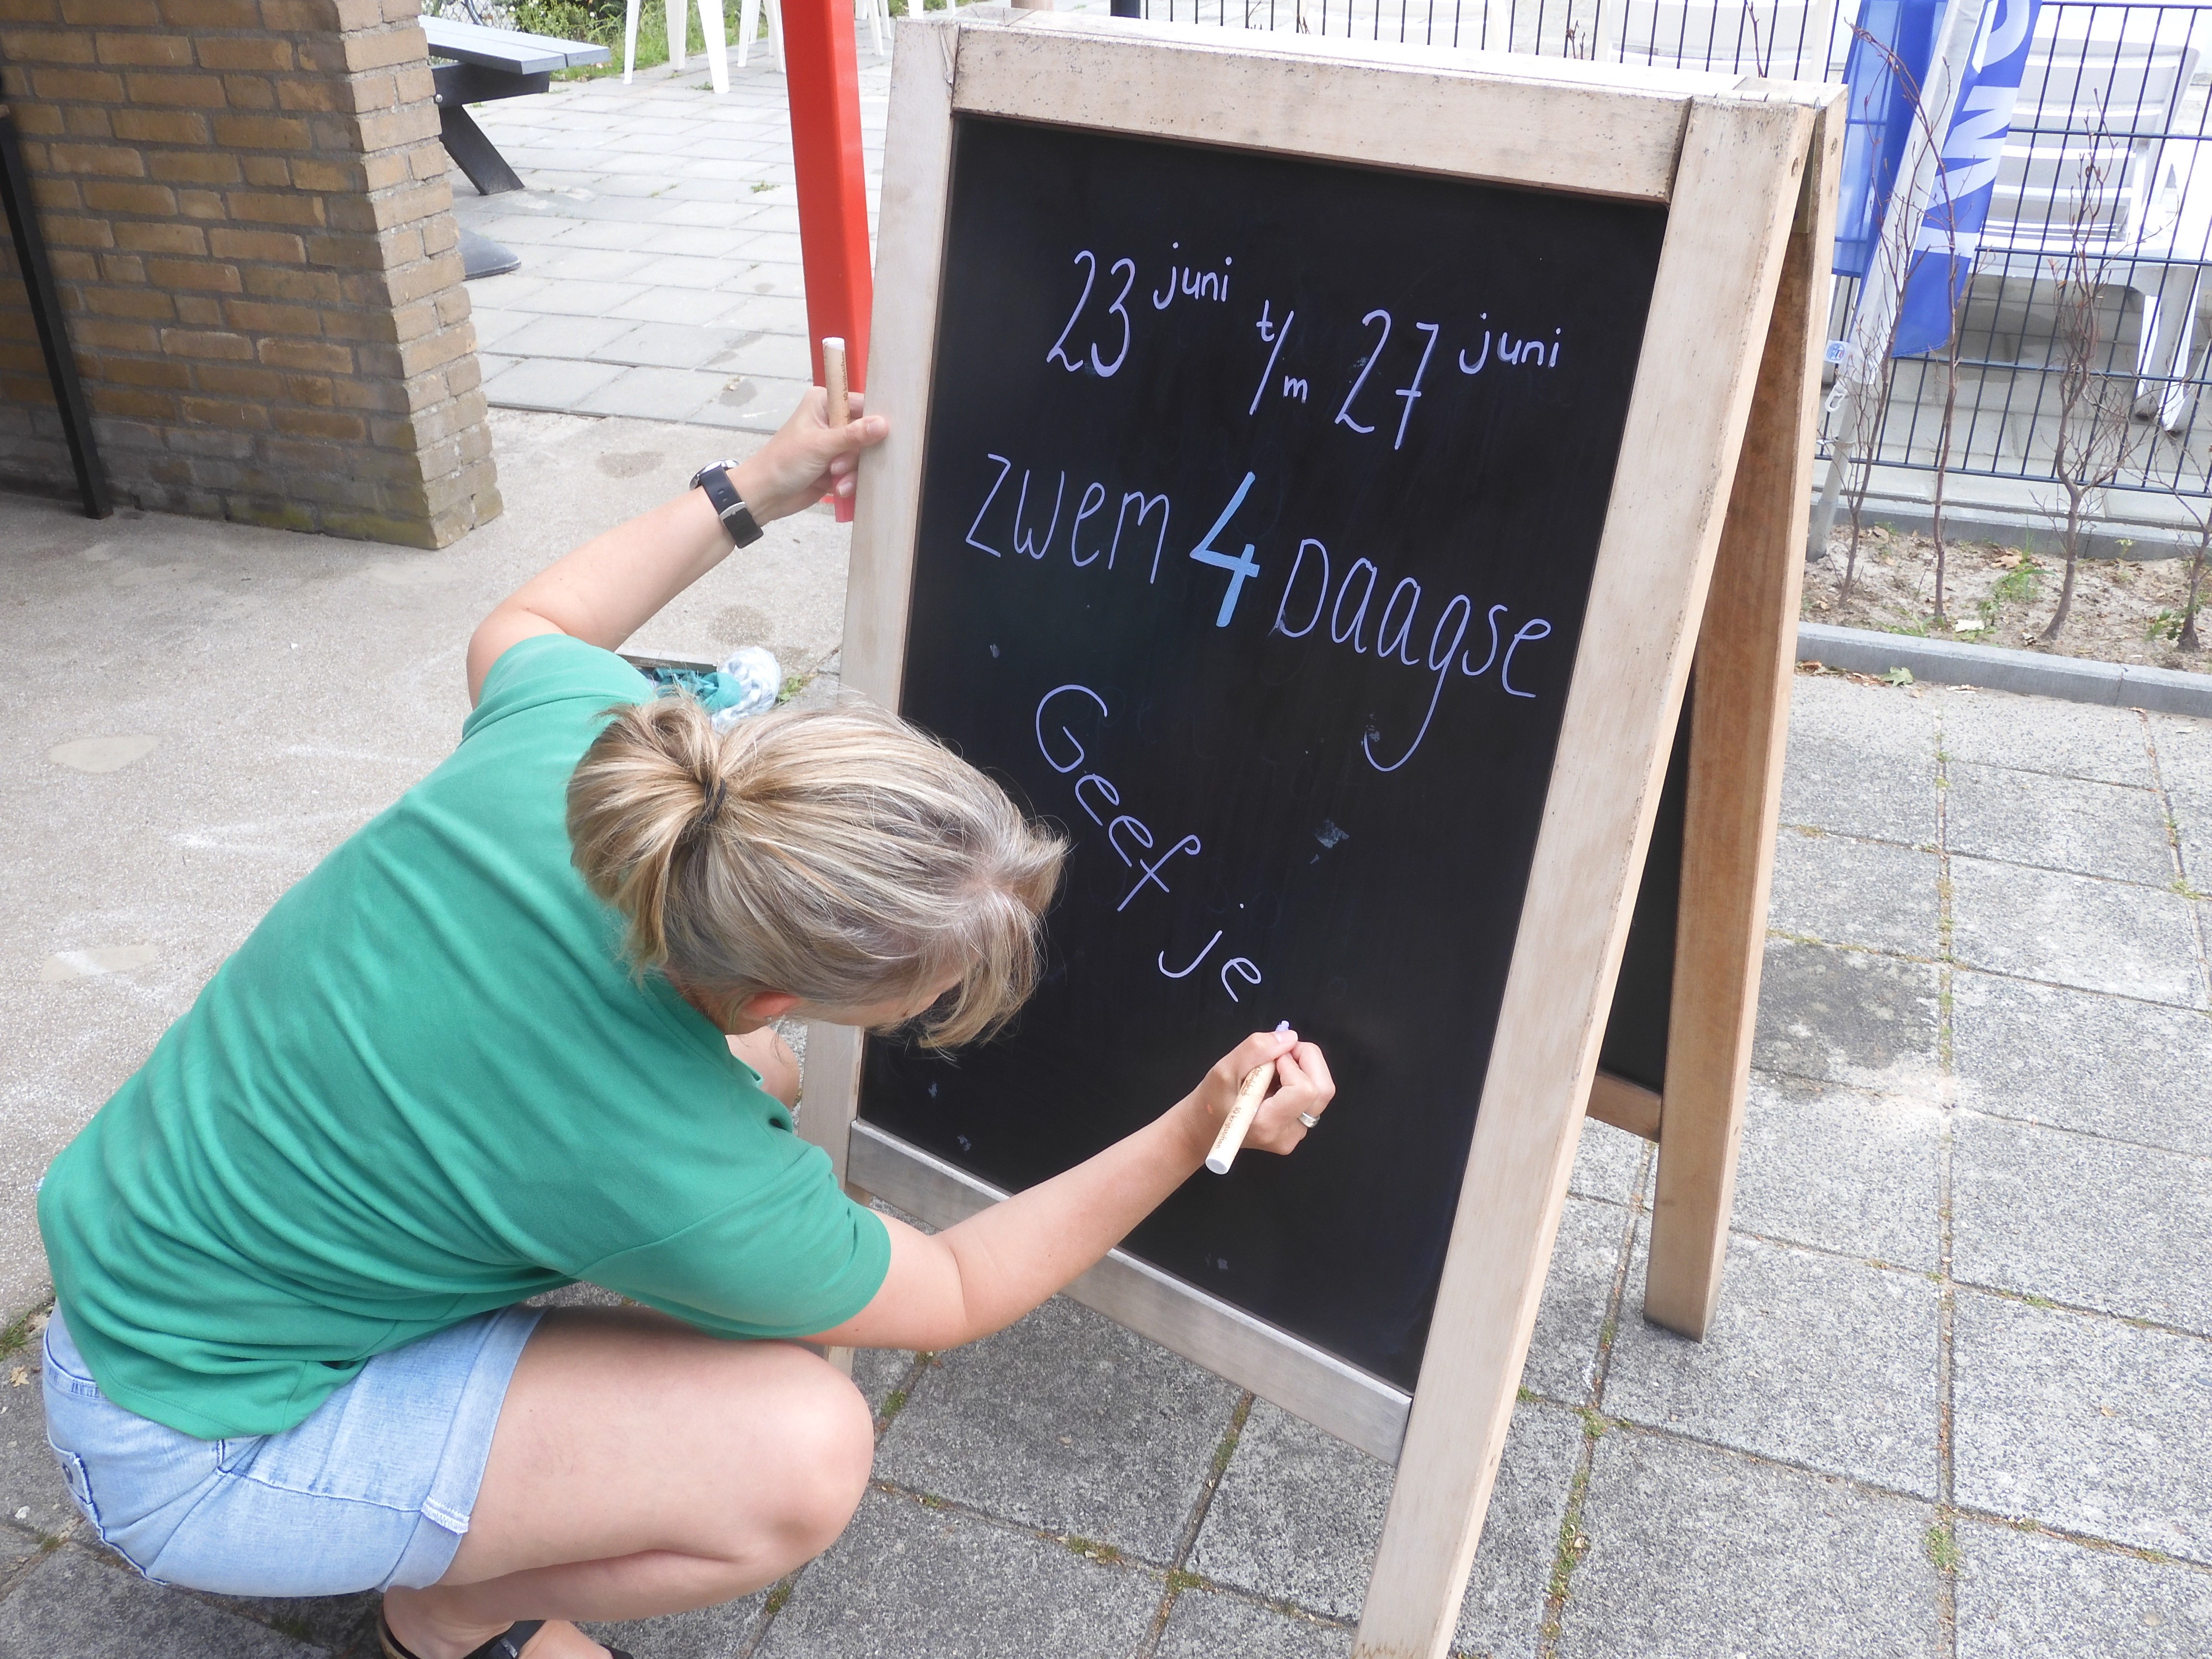 23 juni t/m 27 juni
zwem 4 Daagse
Geef je